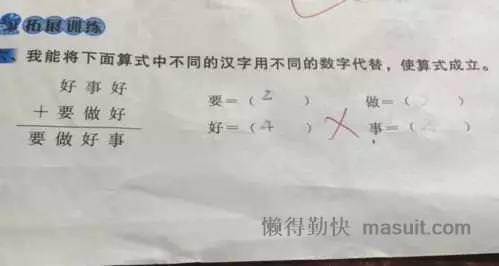 拓展训练
我能将下面算式中不同的汉字用不同的数字代替，使算式成立。
好 事 好
＋ 要 做 好
要 做 好 事
要＝（ 2 ） 做＝（ ）
好＝（ 4 ） 事＝（ ）
懒得勤快 masuit.com